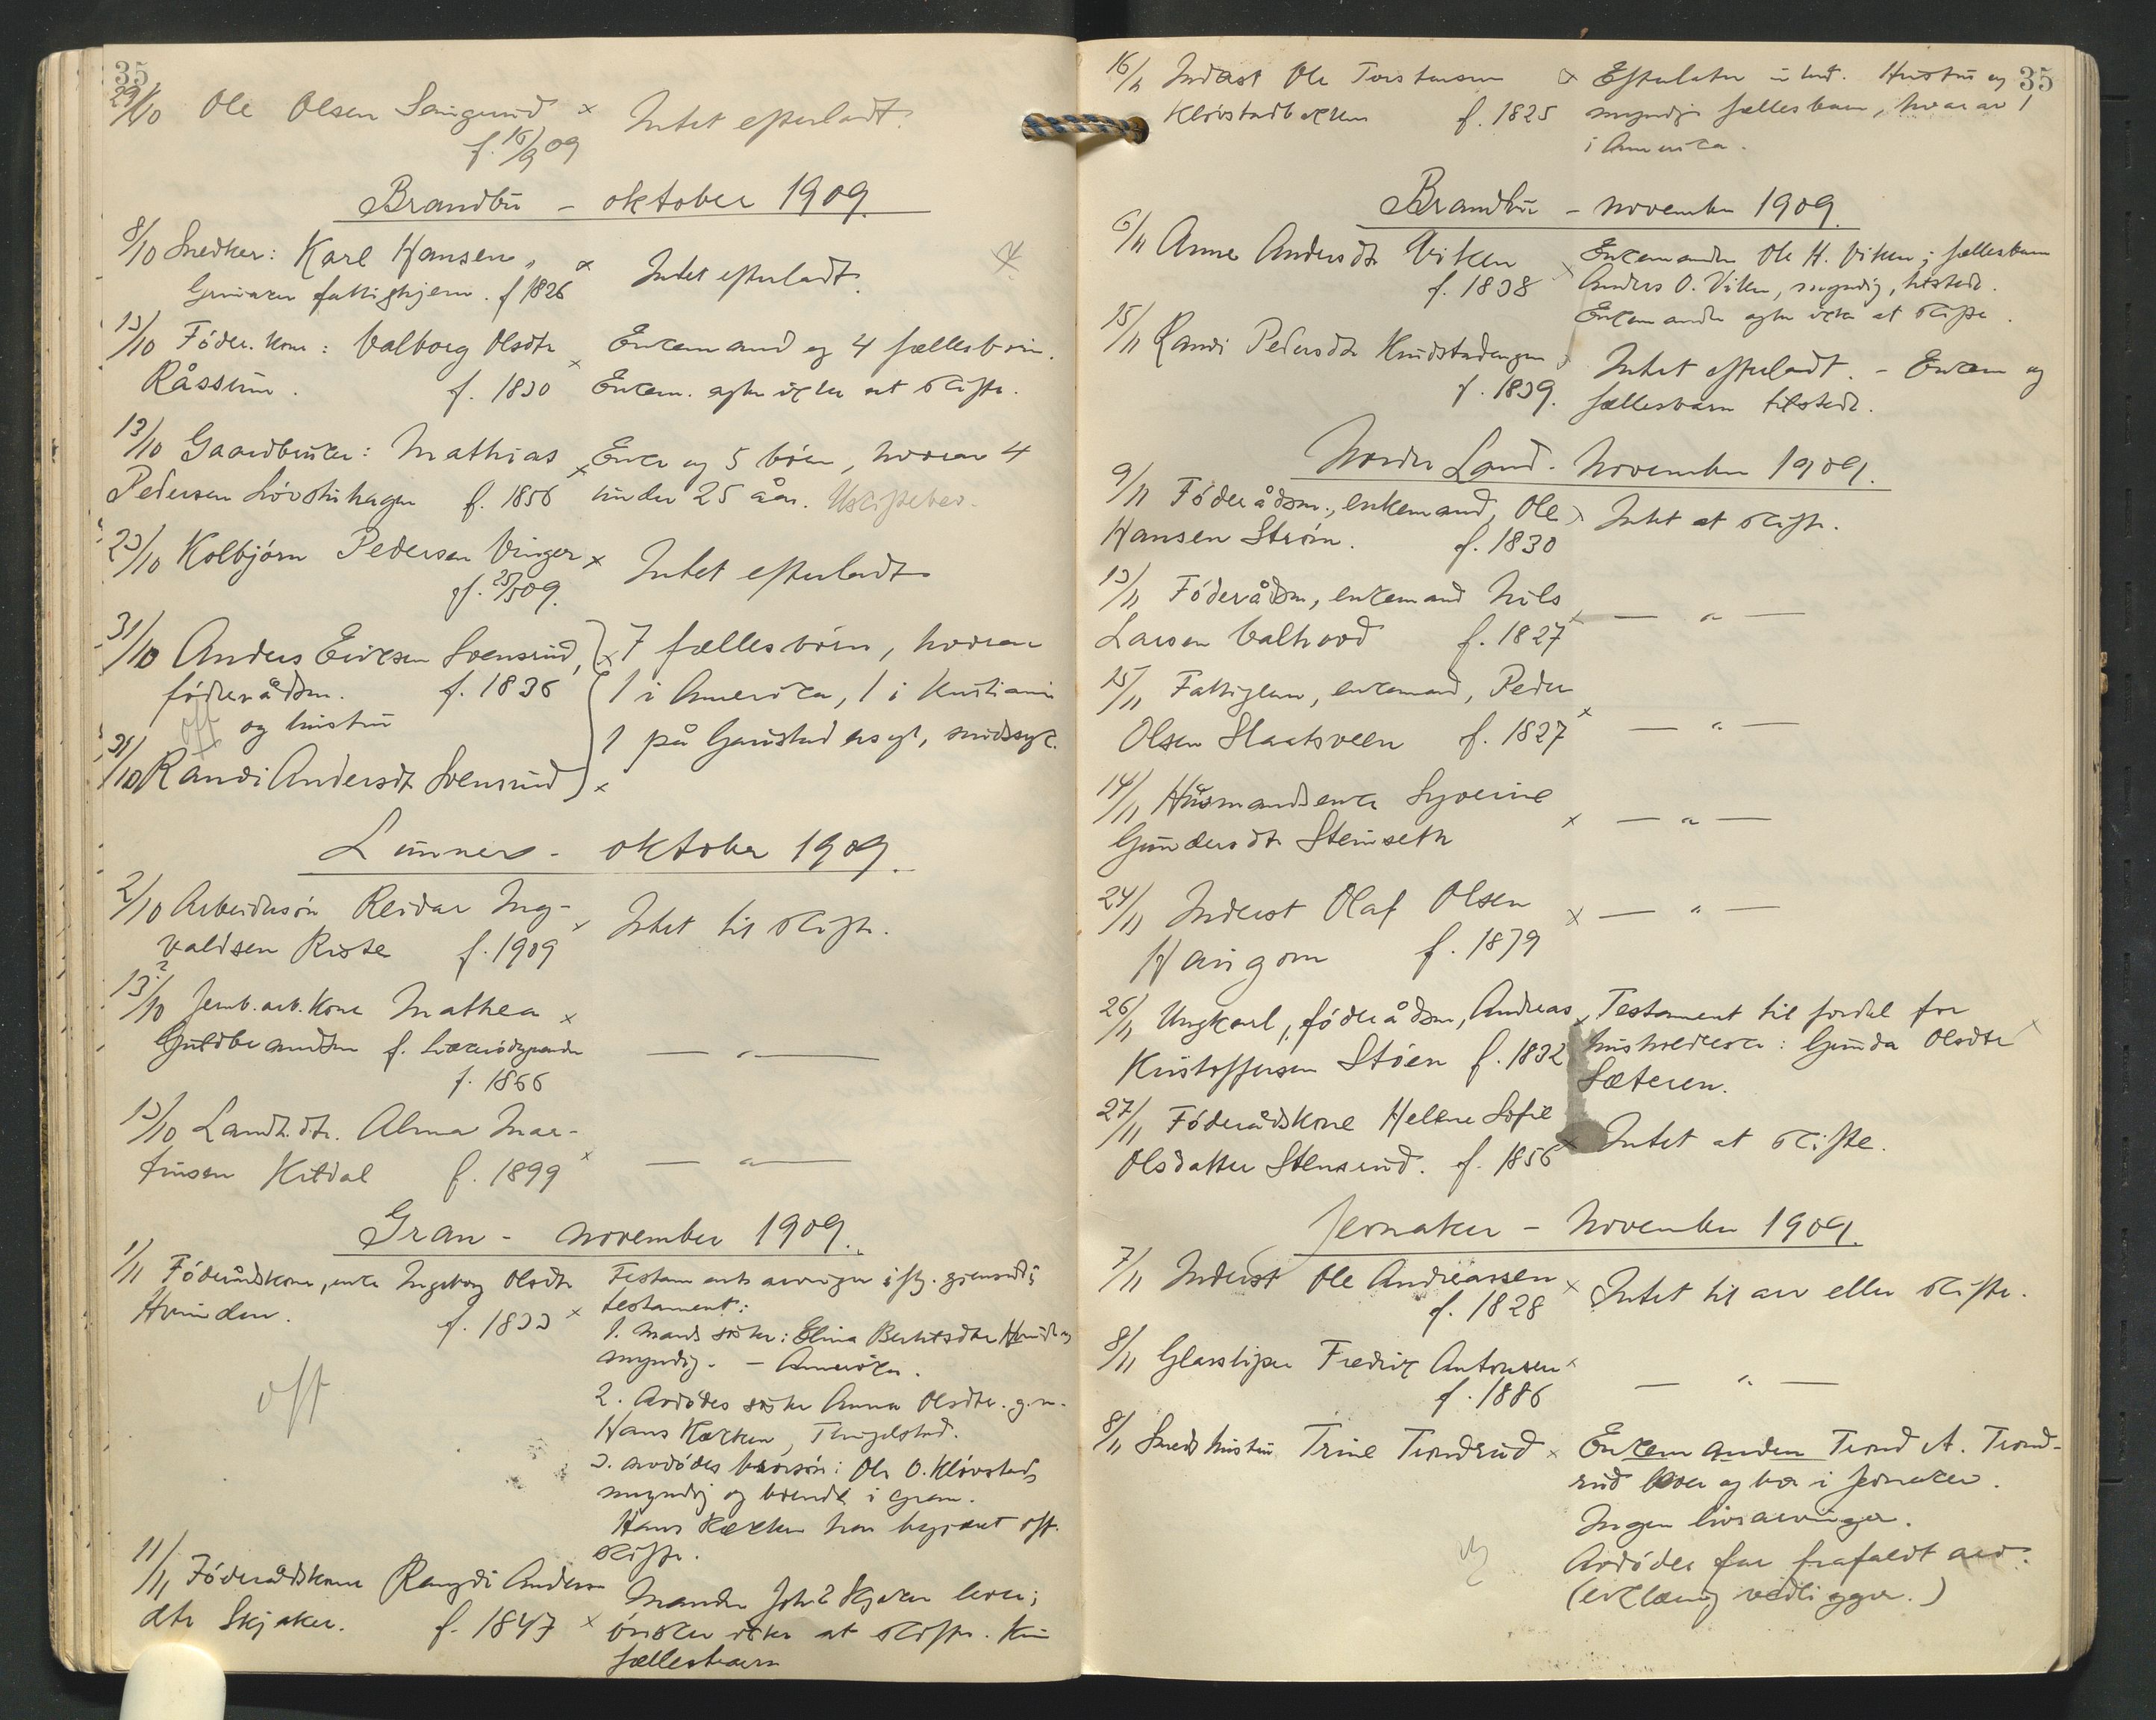 35
29/10 Ole Olsen × Intet efterladt.
f. 16/9 09
Brandbu - oktober 1909.
8/10 Snedker: Karl Hansen, × Intet efterladt.
fattighjem. f 1826
13/10 Föder. kone: Valborg Olsdtr × Enkemand og 4 fællesbörn.
Råssum. f. 1830 Enkem. agter ikke at skifte.
13/10 Gaardbruker: Mathias × Enke og 5 börn, hvorav 4
Pedersen Lövstuhagen f. 1856 under 25 år. Uskiftebev.
23/10 Kolbjörn Pedersen Vinger × Intet efterladt
f. 23/5 09.
31/10 Anders Eriksen Svensrud, × 7 fællesbörn, hvorav
föderådsm. f. 1836 1 i Amerika, 1 i Kristiania
off og hustru 1 på Gaustad asyl, sindssyk.
31/10 Randi Andersdt. Svensrud ×
Lunner - oktober 1909.
2/10 Arbeidersön Reidar Ing- × Intet til skifte.
valdsen Roste f. 1909
13?/10 Jernb. arb. kone Mathea ×
Guldbrandsen f. — " —
f. 1866
13/10 Landh. dtr. Alma Mar-
tinsen Kitdal f. 1899 × — " —
Gran - november 1909.
1/11 Föderådskone, enke Ingeborg Olsdtr Testaments arvinger iflg. gjensidig
Hvinden. f. 1833 × testament:
1. Mands søster: Elina Berhtsdtr Hvinden
myndig. - Amerika.
off 2. Avdödes søster Anna Olsdtr. g. m.
Hans Kækken, Tingelstad.
3. avdödes brorsön: Ole O. Klövstad,
myndig og boende i Gran.
Hans Kækken har begjært off.
skifte.
11/11 Föderådskone Rangdi Anders- Manden Joh. Skjaker lever;
dtr Skjaker. f. 1847 × önsker ikke at skifte. Kun
fællesbarn
35
16/11 Inderst Ole Torstensen × Efterlater sig Hustru og
Klövstadbakken f. 1825 myndige fællesbarn, hvorav 1
i Amerika.
Brandbu - november 1909.
6/11 Anne Andersdtr Viken × Enkemanden Ole H. Viken; fællesbarn
f. 1838 Anders O. Viken, myndig, tilstede.
Enkemanden agter ikke at skifte.
15/11 Randi Pedersdtr Knudstadengen × Intet efterladt. - Enkem og
f. 1839. fællesbarn tilstede.
Nordre Land. November 1909.
9/11 Föderådsm., enkemand, Ole × Intet at skifte.
Hansen Ström. f. 1830
13/11 Föderådsm, enkemand Nils
Larsen Valhovd f. 1827 × — " —
15/11 Fattiglem, enkemand, Peder
Olsen Slaatsveen f. 1827 × — " —
14/11 Husmandsenke Syverine
Gundersdtr Steinseth × — " —
24/11 Inderst Olaf Olsen × — " —
Haugom f. 1879
26/11 Ungkarl, föderådsm, Andreas × Testament til fordel for
Kristoffersen Stöen f. 1832 husholderske: Gunda Olsdtr
Sæteren.
27/11 Föderådskone Hellene Sofie
Olsdatter Stensrud. f. 1856 × Intet at skifte.
Jevnaker - November 1909.
7/11 Inderst Ole Andreassen × Intet til arv eller skifte.
f. 1828
8/11 Glassliper Fredrik Antonsen ×
f. 1886 — " —
8/11 Smeds hustru Trine Trondrud × Enkemanden Trond A. Trond-
rud lever og bor i Jevnaker.
Ingen livsarvinger.
Avdödes far frafaldt arv.
(erklæring vedligger.)